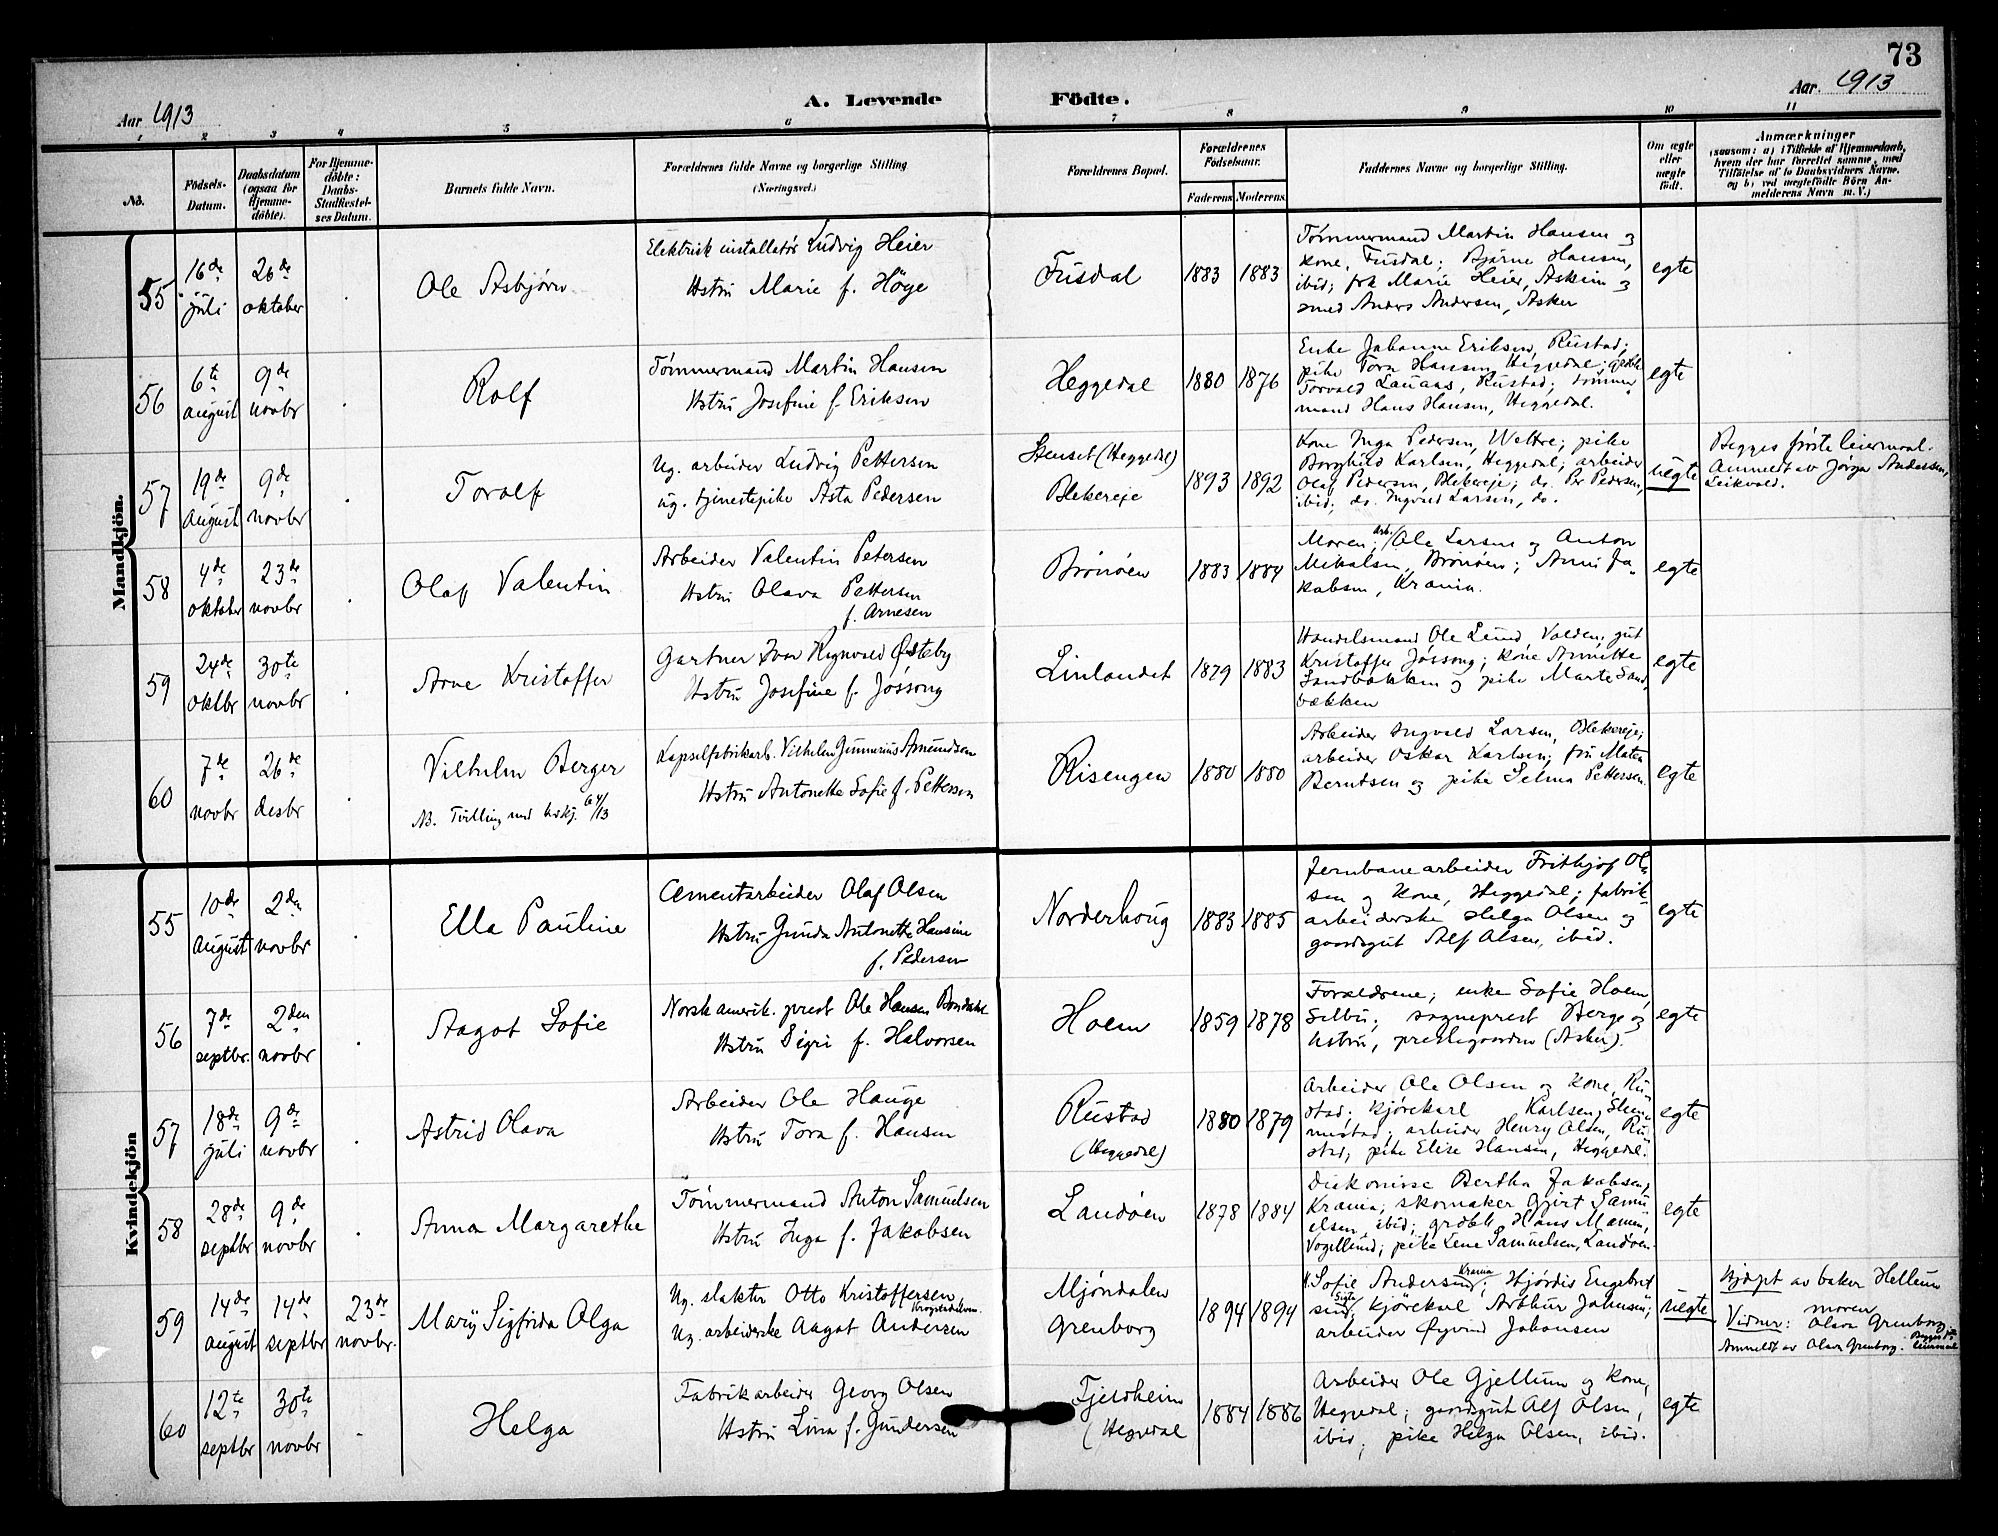 73
Aar 1913
A. Levende Födte.
Aar 1913
1 2 3 4 5 6 7 8 9 10 11
No.
Födsels-Datum.
Daabsdatum (ogsaa for Hjemmedöbte).
For Hjemmedöbte: Daabs-Stadfestelses Datum.
Barnets fulde Navn.
Forældrenes fulde Navne og borgerlige Stilling
(Næringsvei.)
Forældrenes Bopæl.
Forældrenes Födselsaar.
Faderens Moderens
Faddernes Navne og borgerlige Stilling.
Om ægte eller uægte födt.
Anmærkninger
(saasom: a) i Tilfælde af Hjemmedaab,
hvem der har forrettet samme, med
Tilföielse af to Daabsvidners Navne,
og b) ved uægtefödte Börn Anmelderens Navn m. V.)
Mandkjön.
55
16de juli
26de oktober
Ole Asbjørn
Elektrisk installatør Ludvig Heier
Hstru Marie f. Høge
Fusdal
1883 1883
Tømmermand Martin Hansen og
kone, Fusdal; Bjarne Hansen,
ibid; frk Marie Heier, Askim og
smed Anders Andersen, Asker
egte
56
6te august
9de novbr
Rolf
Tømmermand Martin Hansen
Hstru Josefine f. Eriksen
Heggedal
1880 1876
Enke Johanne Eriksen, Rustad;
pike Tora Hansen, Heggedal;
Torvald Lauaas, Rustad; tømmer-
mand Hans Hansen, Heggedal.
egte
57
19de august
9de novbr
Toralf
Ug. arbeider Ludvig Pettersen
ug. tjenestepike Asta Pedersen
Stenset (Heggedal)
Blekereje
1893 1892
Kone Inga Pedersen, Weltre; pike
Borghild Karlsen, Heggedal; arbeider
Olaf Pedersen, Blekereje; do. Per Pedersen,
ibid; do. Ingvald Larsen, do.
uegte
Begges første leiermaal.
Anmeldt av Jørgen Anderssen,
Leikvold.
58
4de oktober
23de novbr
Olaf Valentin
Arbeider Valentin Petersen
Hstru Olava Pettersen
f. Arnesen
Brønøen
1883 1884
Moren; arb. Ole Larsen og Anton
Mikalsen, Brønøen; Anni Ja-
kobsen, Krania.
egte
59
24de oktbr
30te novbr
Arne Kristoffer
Gartner Ivar Rognvald Østeby
Hstru Josefine f. Jøssong
Linlandet
1879 1883
Handelsmand Ole Lund, Valden; gut
Kristoffer Jøssong; kone Annette
Sandbakken og pike Marte Sand-
bækken
egte
60
7de novbr
26de desbr
Vilhelm Berger
NB. Tvilling med kvkj. 64/13
Kapselfabrikarb. Vilhelm Gunnerius Amundsen
Hstru Antonette Sofie f. Pettersen
Risengen
1880 1880
Arbeider Ingvald Larsen, Blekereje;
arbeider Oskar Karlsen; fru Matea
Berntsen og pike Selma Pettersen.
egte
Kvindekjön
55
10de august
2den novbr
Ella Pauline
Cementarbeider Olaf Olsen
Hstru Gunda Antonette Hansine
f. Pedersen
Norderhoug
1883 1885
Jernbanearbeider Frithjof Ol-
sen og kone, Heggedal; fabrik-
arbeiderske Helga Olsen og
gaardsgut Alf Olsen, ibid.
egte
56
7de septbr.
2den novbr
Aagot Sofie
Norsk amerik. prest Ole Hansen
Hstru Sigri f. Halvorsen
Hoem
1859 1878
Forældrene; enke Sofie Hoem,
Selbu; sogneprest Berge og
hstru, prestegaarden (Asker).
egte
57
18de juli
9de novbr
Astrid Olava
Arbeider Ole Hauge
Hstru Tora f. Hansen
Rustad
(Heggedal)
1880 1879
Arbeider Ole Olsen og kone, Ru-
stad; kjørekarl Karlsen,
arbeider Henry Olsen, Ru-
stad; pike Elise Hansen, Heggedal.
egte
58
28de septbr
9de novbr
Anna Margarethe
Tømmermand Anton Samuelsen
Hstru Inga f. Jakobsen
Landøen
1878 1884
Diskonisse Bertha Jakobsen,
Krania; skomaker Gjert Samu-
elsen, ibid; Hans Mamen,
Vogellund; pike Lene Samuelsen, Landøen.
egte
59
14de august
14de septbr
23de novbr.
Mary Sigfrida Olga
Ug. slakter Otto Kristoffersen,
Ug. arbeiderske Aagot Andersen
Mjøndalen
Grenborg
1894 1894
Sofie Andersen, Krania; Hjørdis Engebret-
sen, kjørekarl Arthur Johnsen;
arbeider Øyvind Johansen
uegte
Hjdøpt av baker Hellum
Vidner: moren
Olava Grenborg
Anmeldt av Olava Grenborg. Begges 1ste leiermaal
60
12te septbr
30te novbr
Helga
Fabrikarbeider Georg Olsen
Hstru Lina f. Gundersen
Fjeldheim
(Heggedal
1884 1886
Arbeider Ole Gjellum og kone,
Heggedal; gaardsgut Alf Olsen,
ibid; pike Helga Olsen, ibid.
egte